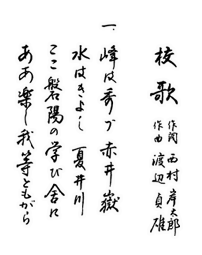 校歌
作詞 西村岸太郎
作曲 渡辺貞雄
一、峰は秀づ 赤井嶽
水はきよし 夏井川
ここ磐陽の学び舎に
ああ楽し我等ともがら